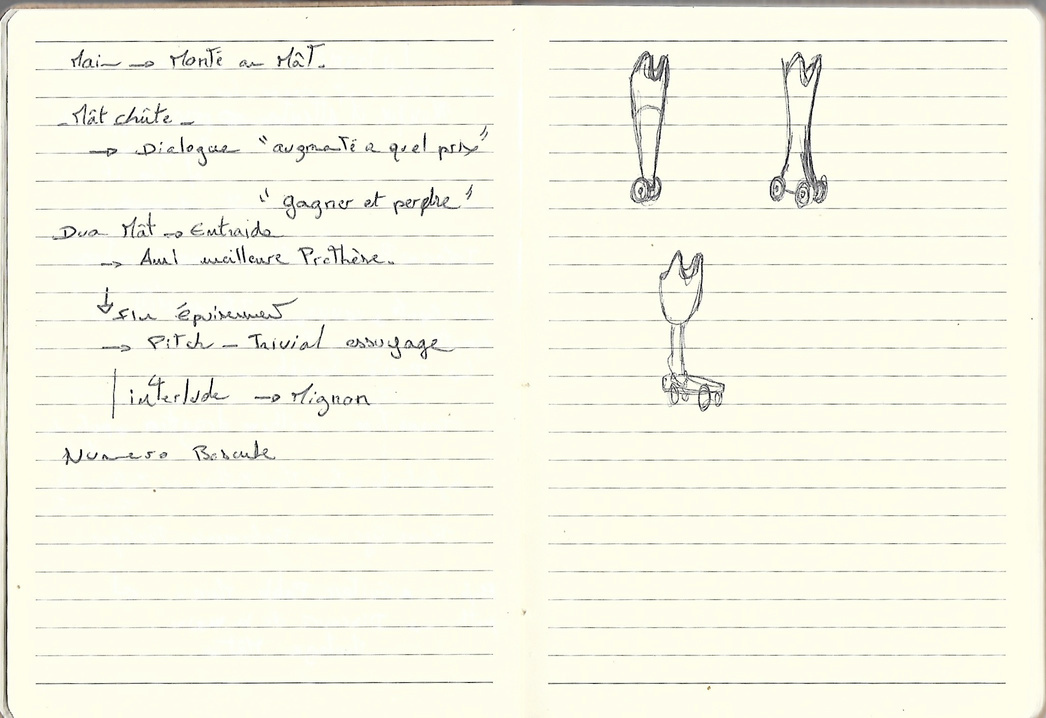 Main → Monté au Mât.
Mât chûte -
→ Dialogue "augmenté a quel prix"
"gagner et perdre"
Duo Mât → Entraide
→ Ami meilleure Prothèse.
↓ fin épuisement
→ Pitch - Trivial essuyage
interlude → Mignon
Numero Bascule